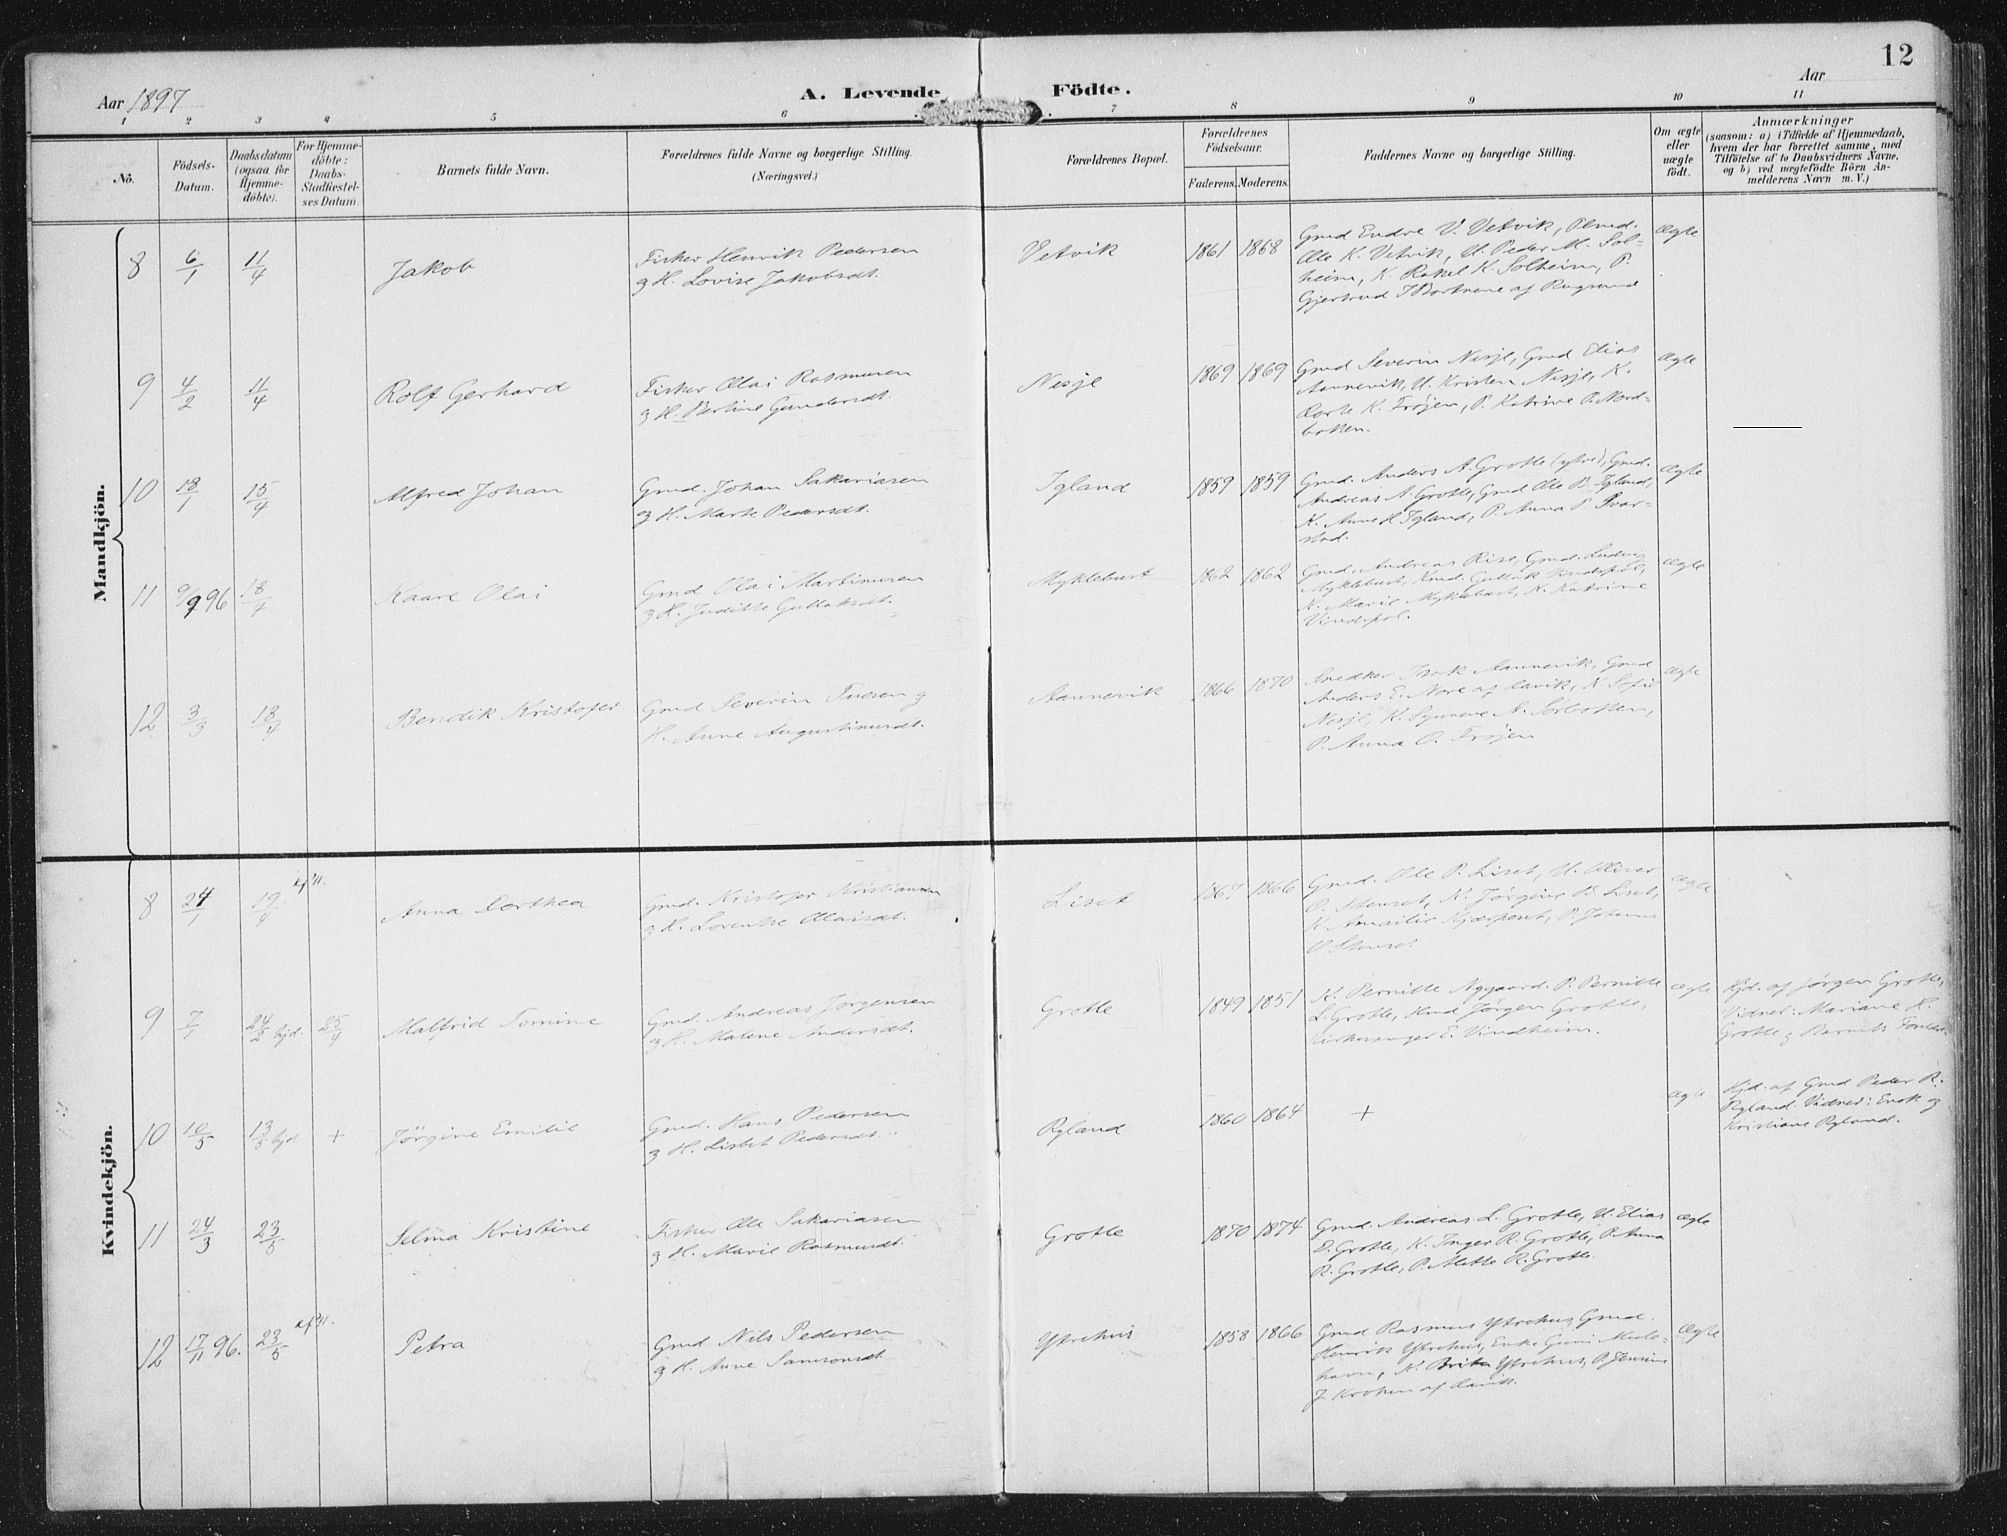 12
Aar 1897
A. Levende
Födte.
Aar
1 2 3 4 5 6 7 8 9 10 11
No.
Födsels-
Datum.
Daabsdatum
(ogsaa for
Hjemme-
döbte).
For Hjemme-
döbte:
Daabs-
Stadfæstel-
ses Datum.
Barnets fulde Navn.
Forældrenes fulde Navne og borgerlige Stilling.
(Næringsvei.)
Forældrenes Bopæl.
Forældrenes
Födselsaar.
Faderens. Moderens.
Faddernes Navne og borgerlige Stilling.
Om ægte
eller
uægte
födt.
Anmærkninger
(saasom: a) i Tilfælde af Hjemmedaab,
hvem der har forrettet samme, med
Tilföielse af to Daabsvidners Navne,
og b) ved uægtefödte Börn An-
melderens Navn m. V.)
Mandkjön.
8 6/1 11/4 Jakob
Fisker Henrik Pedersen
og H. Lovise Jakobsdt.
Vetvik 1861 1868
Gmd Endre V. Vetvik,
Ole K. Vetvik, U. Peder M. Sol=
heim, K. Rakel K. Solheim, P.
Gjertrud af Rugsund
Ægte
9 4/2 11/4 Rolf Gerhard
Fisker Olai Rasmusen
og H. Bertine Gundersdt.
Nesje 1869 1869
Gmd Severin Nesje, Gmd Elias
Aannevik, U. Kristen Nesje, K.
Dorte K. Frøjen, P. Katrine P. Nord=
botten.
Ægte
10 18/1 15/4 Alfred Johan
Gmd. Johan Sakariasen
og H. Marte Pedersdt.
Igland 1859 1859
Gmd. Anders A. Grotle (ytre), Gmd.
Andreas A. Grotle, Gmd Ole B. Igland,
K. Anne H. Igland, P. Anna P. Svar=
stad.
Ægte
11 9/9 96 18/4 Kaare Olai
Gmd Olai Martinusen
og H. Juditte Gullaksdt.
Myklebust 1862 1862
Gmd. Andreas Rise, Gmd. Ludvig
Myklebust, Gullak Vindspol,
K. Marie Myklebust, K. Katrine
Vindspol.
Ægte
12 3/3 18/4 Bendik Kristofer
Gmd Severin Iversen og
H. Anne Augustinusdt.
Aannevik 1866 1870
Snedker Isak Aannevik, Gmd
Anders E. Nore af Davik, K. Sofie
Nesje, K. Synneve A. Sørbotten,
P. Anna O. Frøjen
Ægte
Kvindekjön.
8 24/1 19/4 Anna Dorthea
Gmd. Kristofer Kristiansen
og H. Lorentse Olaisdt.
Liset 1867 1866
Gmd. Ole P. Liset, U. Oliver
O. Stenset, K. Jørgine B. Liset,
K. P. Johanne
O Stenset
Ægte
9 7/1 24/2 hjd. 25/4 Malfrid Tomine
Gmd. Andreas Jørgensen
og H. Malene Andersdt.
Grotle 1849 1851
K. Pernille Nygaard. P. Pernille
L. Grotle, Jørgen Grotle,
Kirkesanger E. Vindheim.
Ægte
Hjd. af Jørgen Grotle,
Vidner: Mariane H.
Grotle og Barnets Forældre.
10 10/5 13/5 hjd + Jörgine Emilie
Gmd. Hans Pedersen
og H. Lisbet Pedersdt.
Ryland 1860 1864 + Ægte
Hjd. af Gmd Peder R.
Ryland. Vidner: Enok og
Kristiane Ryland.
11 24/3 23/5 Selma Kristine
Fisker Ole Sakariasen
og H. Marie Rasmusdt.
Grotle 1870 1874
Gmd. Andreas L. Grotle, U. Elias
E. Grotle, K. Inger R. Grotle, P. Anna
R. Grotle, P. Mette R. Grotle.
Ægte
12 17/11 96. 23/5 Petra
Gmd Nils Pedersen
og H. Anne Samsonsdt.
Ytrehus 1858 1866
Gmd Rasmus Ytrehus, Gmd.
Henrik Ytrehus, Enke
havn, K. Brita Ytrehus, P. Jensine
J. Krohn af Davik.
Ægte